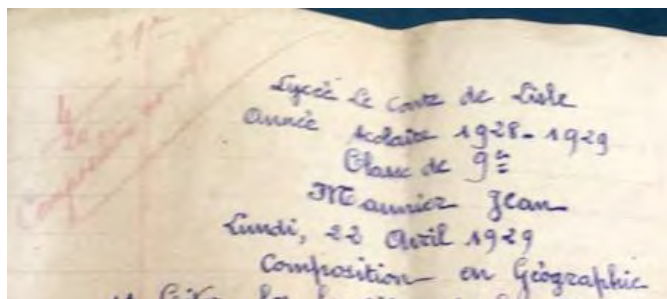 31e
4
20
Lycée Le Conte de Lisle
Année scolaire 1928-1929
Classe de 9e
Maurier Jean
Lundi, 22 Avril 1929
Composition en Géographie